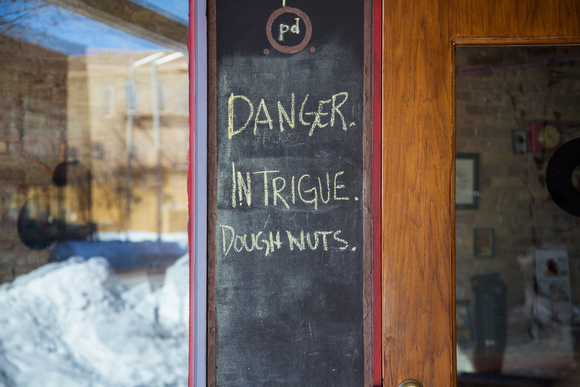 pd
DANGER.
INTRIGUE.
DOUGHNUTS.